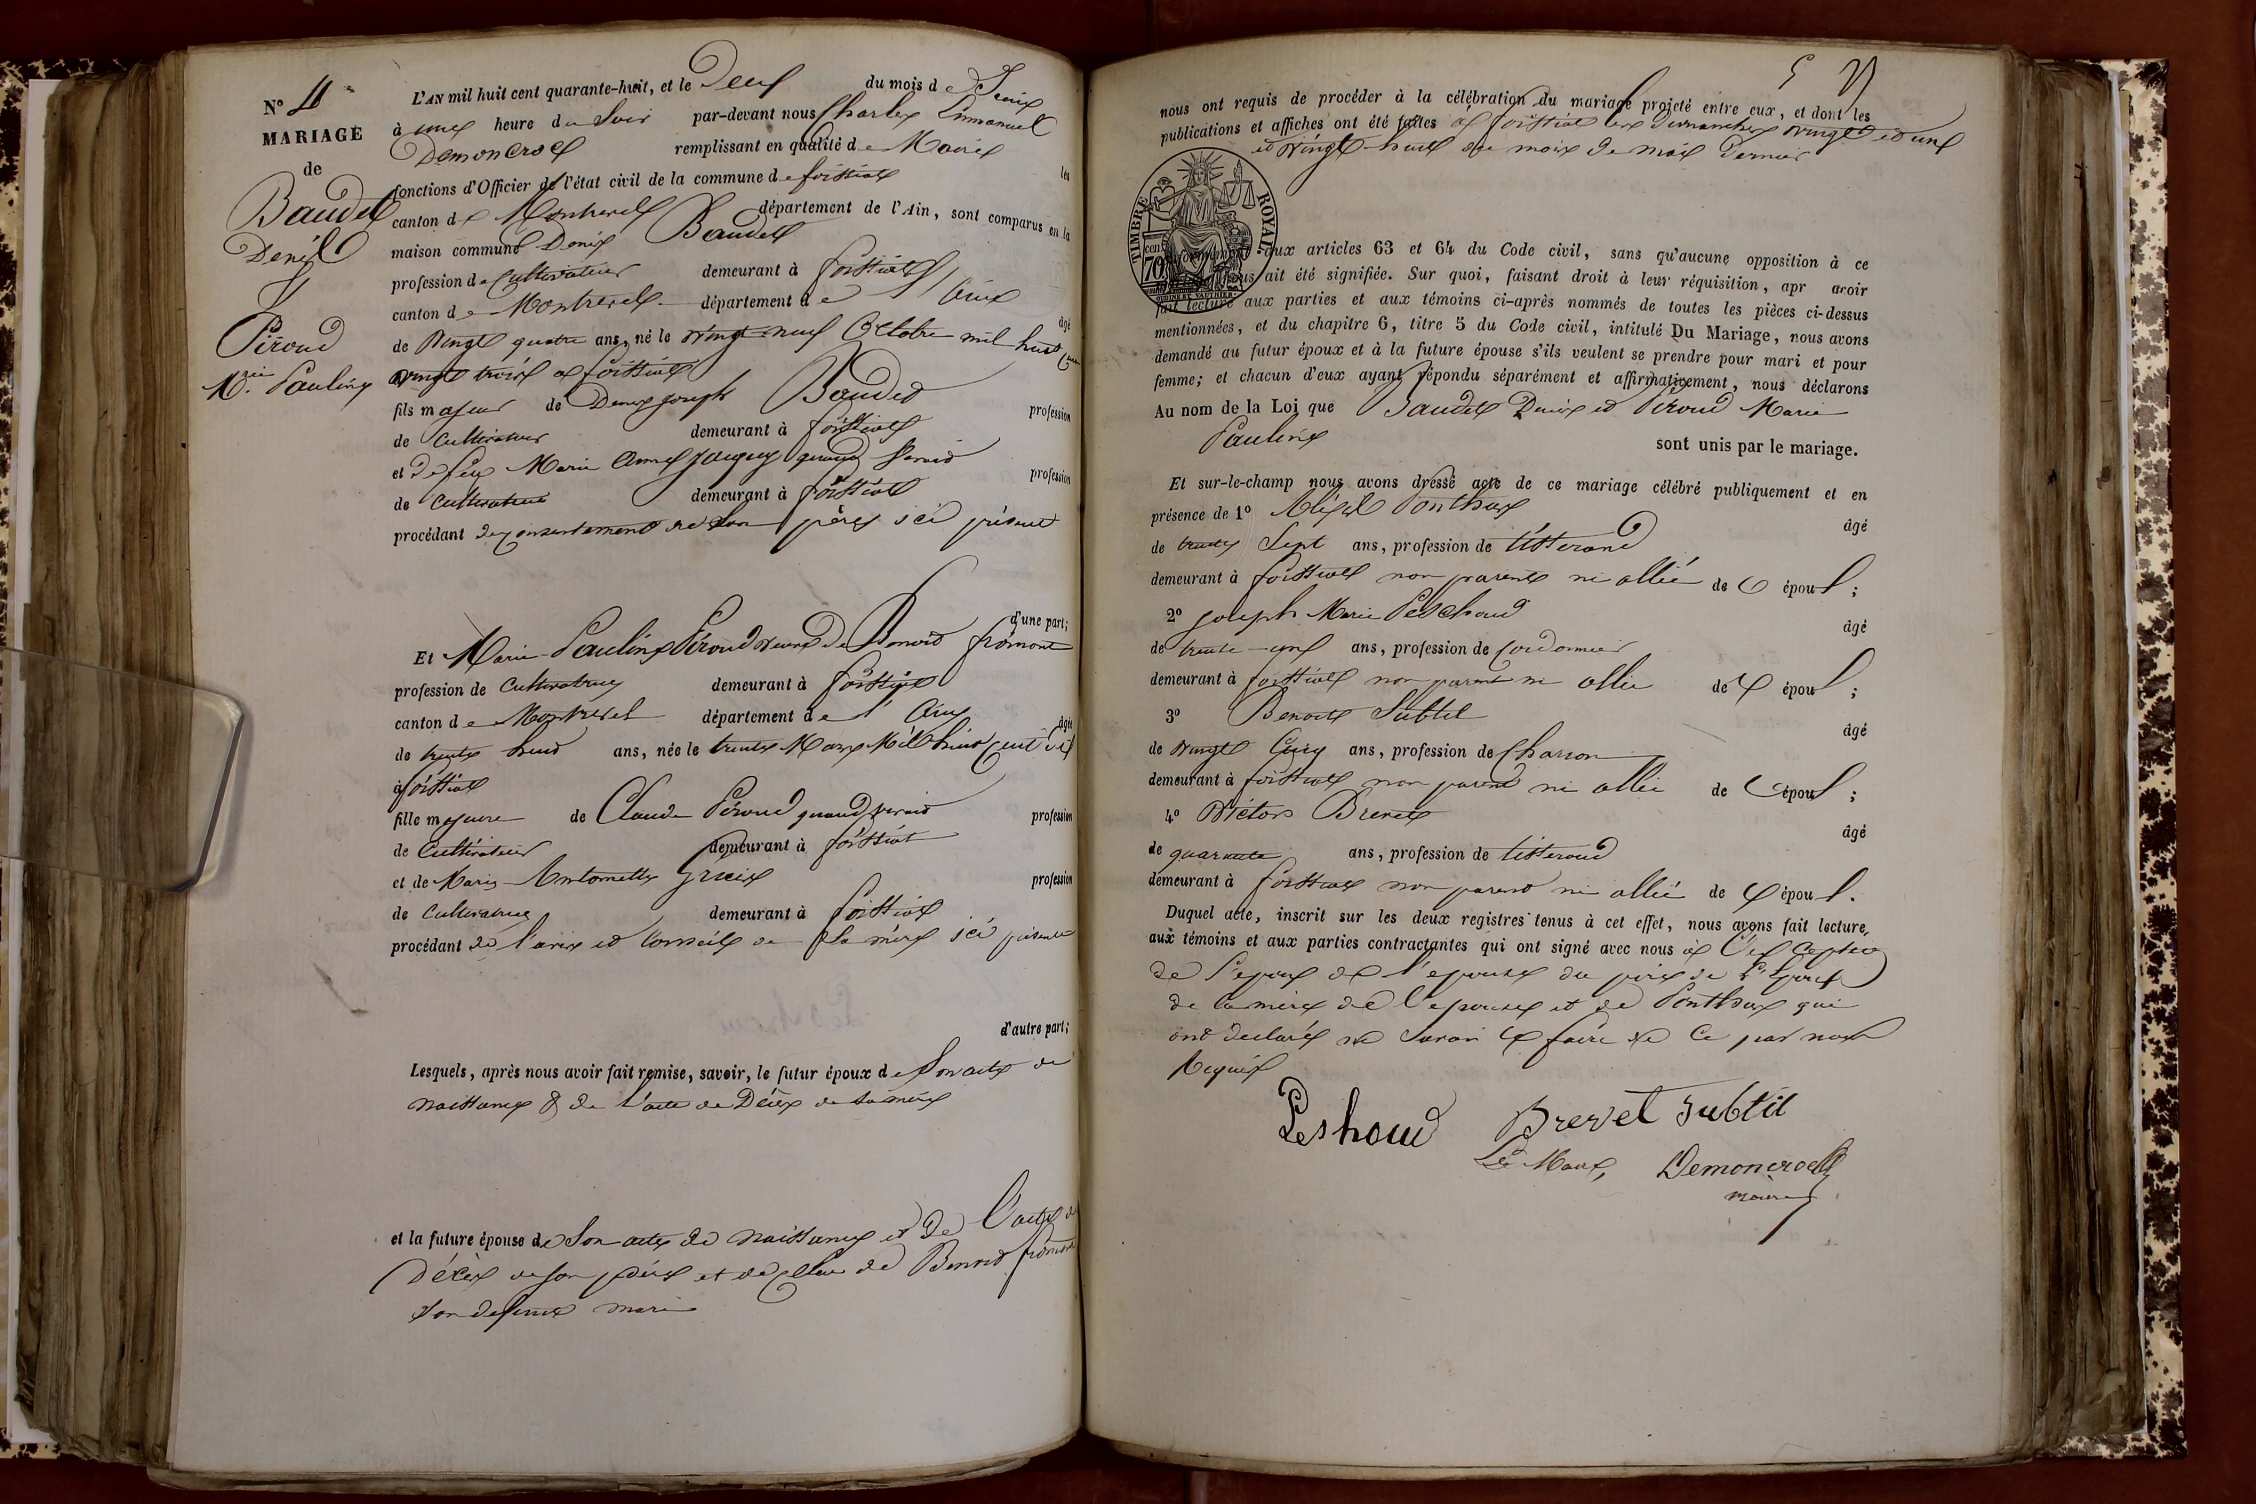 N° 11
MARIAGE
de
Baudet
Denis
&
Péroud
M.rie Pauline
L'AN mil huit cent quarante-huit, et le Deux du mois de Juin
à une heure du Soir par-devant nous Charles Emmanuel
Demoncroc remplissant en qualité de Maire les
fonctions d'Officier de l'état civil de la commune de foissiat
canton de Montrevel département de l'Ain, sont comparus en la
maison commune Denis Baudet
profession de Cultivateur demeurant à foissiat
canton de Montrevel département de l'Ain âgé
de Vingt quatre ans, né le vingt neuf Octobre mil huit cent
vingt trois à foissiat
fils majeur de Denis joseph Baudet profession
de Cultivateur demeurant à foissiat
et de feue Marie Anne quand vivait profession
de Cultivateur demeurant à foissiat
procédant du consentement de son père ici présent
d'une part;
Et Marie Pauline Péroud veuve de Benoit fromont
profession de Cultivatrice demeurant à foissiat
canton de Montrevel département de l'Ain âgée
de trente huit ans, née le trente Mars Mil huit cent dix
à foissiat
fille majeure de Claude Péroud quand vivait profession
de Cultivateur demeurant à foissiat
et de Marie Antoinette profession
de Cultivatrice demeurant à foissiat
procédant de l'avis et Conseils de sa mère ici présente
d'autre part;
Lesquels, après nous avoir fait remise, savoir, le futur époux de Son acte de
naissance & de l'acte de Décès de sa mère
et la future épouse de Son acte de naissance et de l'acte de
Décès de son père et de celui de Benoit fromont
son defunt mari
nous ont requis de procéder à la célébration du mariage projeté entre eux, et dont les
publications et affiches ont été faites à foissiat les dimanches vingt et un
et vingt-huit du mois de mai dernier
TIMBRE ROYAL
70 cen
conformément aux articles 63 et 64 du Code civil, sans qu'aucune opposition à ce
nous ait été signifiée. Sur quoi, faisant droit à leur réquisition, apr avoir
fait lecture aux parties et aux témoins ci-après nommés de toutes les pièces ci-dessus
mentionnées, et du chapitre 6, titre 5 du Code civil, intitulé Du Mariage, nous avons
demandé au futur époux et à la future épouse s'ils veulent se prendre pour mari et pour
femme; et chacun d'eux ayant répondu séparément et affirmativement, nous déclarons
Au nom de la Loi que Baudet Denis et Péroud Marie
Pauline sont unis par le mariage.
Et sur-le-champ nous avons dressé acte de ce mariage célébré publiquement et en
présence de 1° Alexis Ponthus âgé
de trente Sept ans, profession de tisserand
demeurant à foissiat non parent ni allié des époux;
2° Joseph Marie Peschoud âgé
de trente-un ans, profession de Cordonnier
demeurant à foissiat non parent ni allié des époux;
3° Benoit Subtil âgé
de vingt Cinq ans, profession de Charron
demeurant à foissiat non parent ni allié des époux;
4° Victor Brevet âgé
de quarante ans, profession de tisserand
demeurant à foissiat non parent ni allié des époux.
Duquel acte, inscrit sur les deux registres tenus à cet effet, nous avons fait lecture
aux témoins et aux parties contractantes qui ont signé avec nous à l'exception
de l'epoux de l'epouse du père de l'Epoux
de la mère de l'epouse et de Ponthus qui
ont declaré ne savoir le faire de ce par nous
Requis
Peshoud Brevet Subtil
Le Maire, Demoncroc
maire